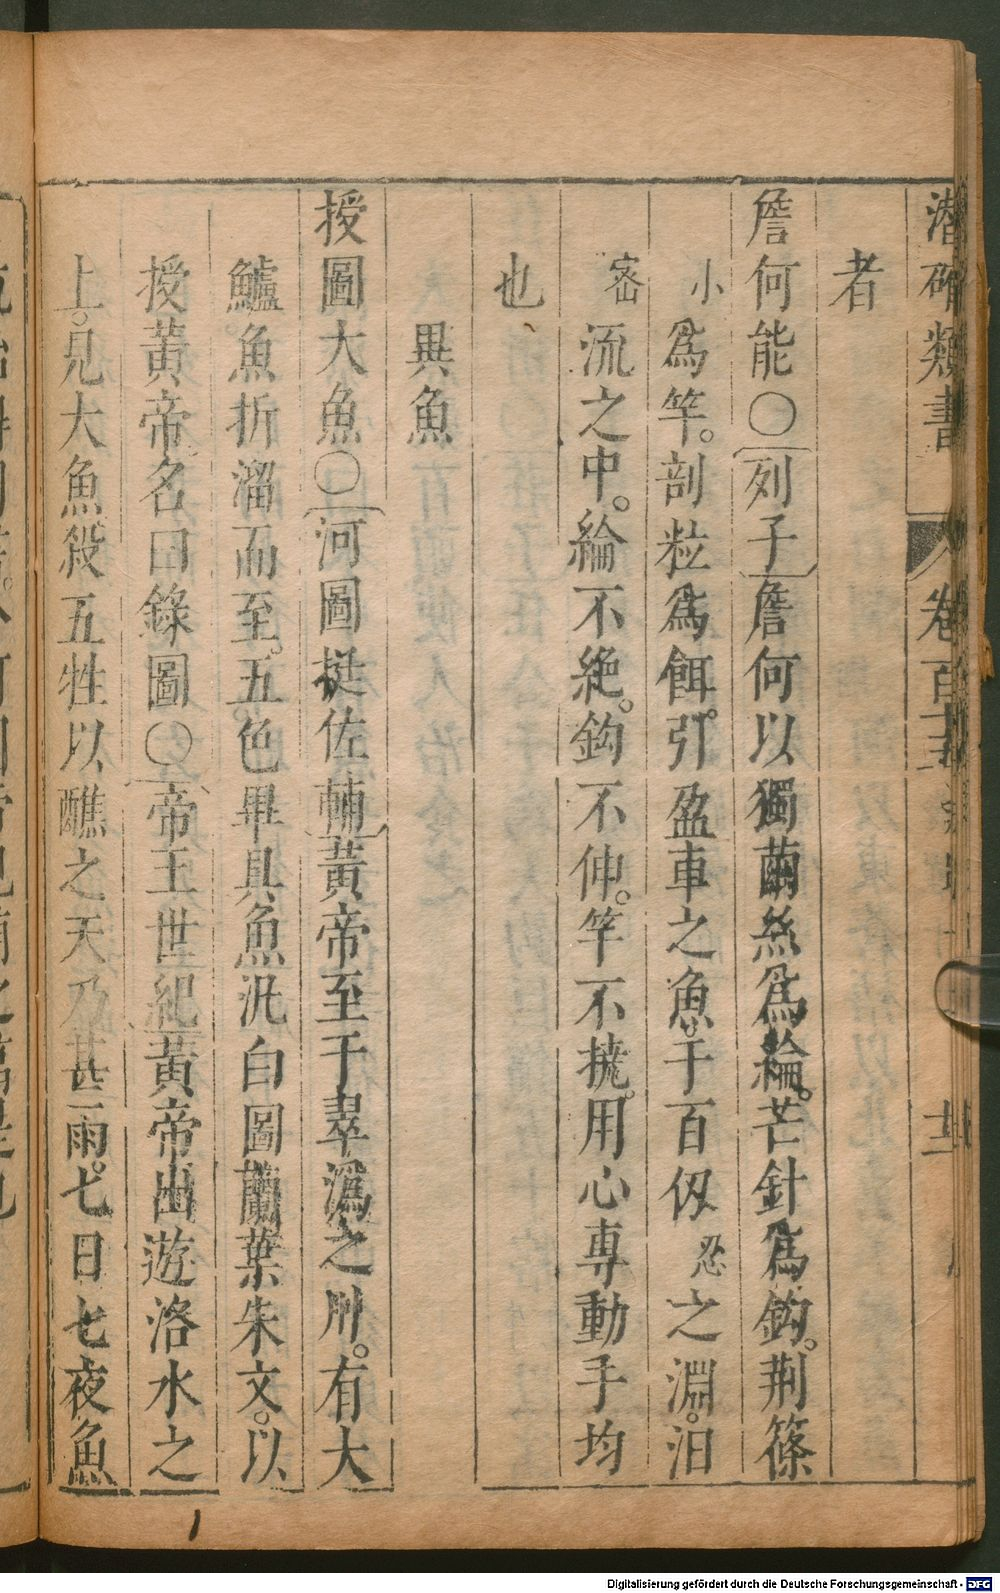 者
詹何能○列子詹何以獨繭絲爲綸。芒針爲鈎。荆篠
小爲竿。剖粒爲餌。引盈車之魚。于百仭忍之淵。汩
密流之中。綸不絶。鈎不伸。竿不撓。用心專動手均
也
異魚
授圖大魚○河圖挺佐輔黃帝至于翠潙之川。有大
鱸魚折溜而至。五色畢具魚汎白圖蘭葉朱文。以
授黃帝。名曰錄圖○帝王世紀黃帝出遊洛水之
上。見大魚殺五牲以醮之天乃甚雨。七日七夜魚
Digitalisierung gefördert durch die Deutsche Forschungsgemeinschaft - DFG